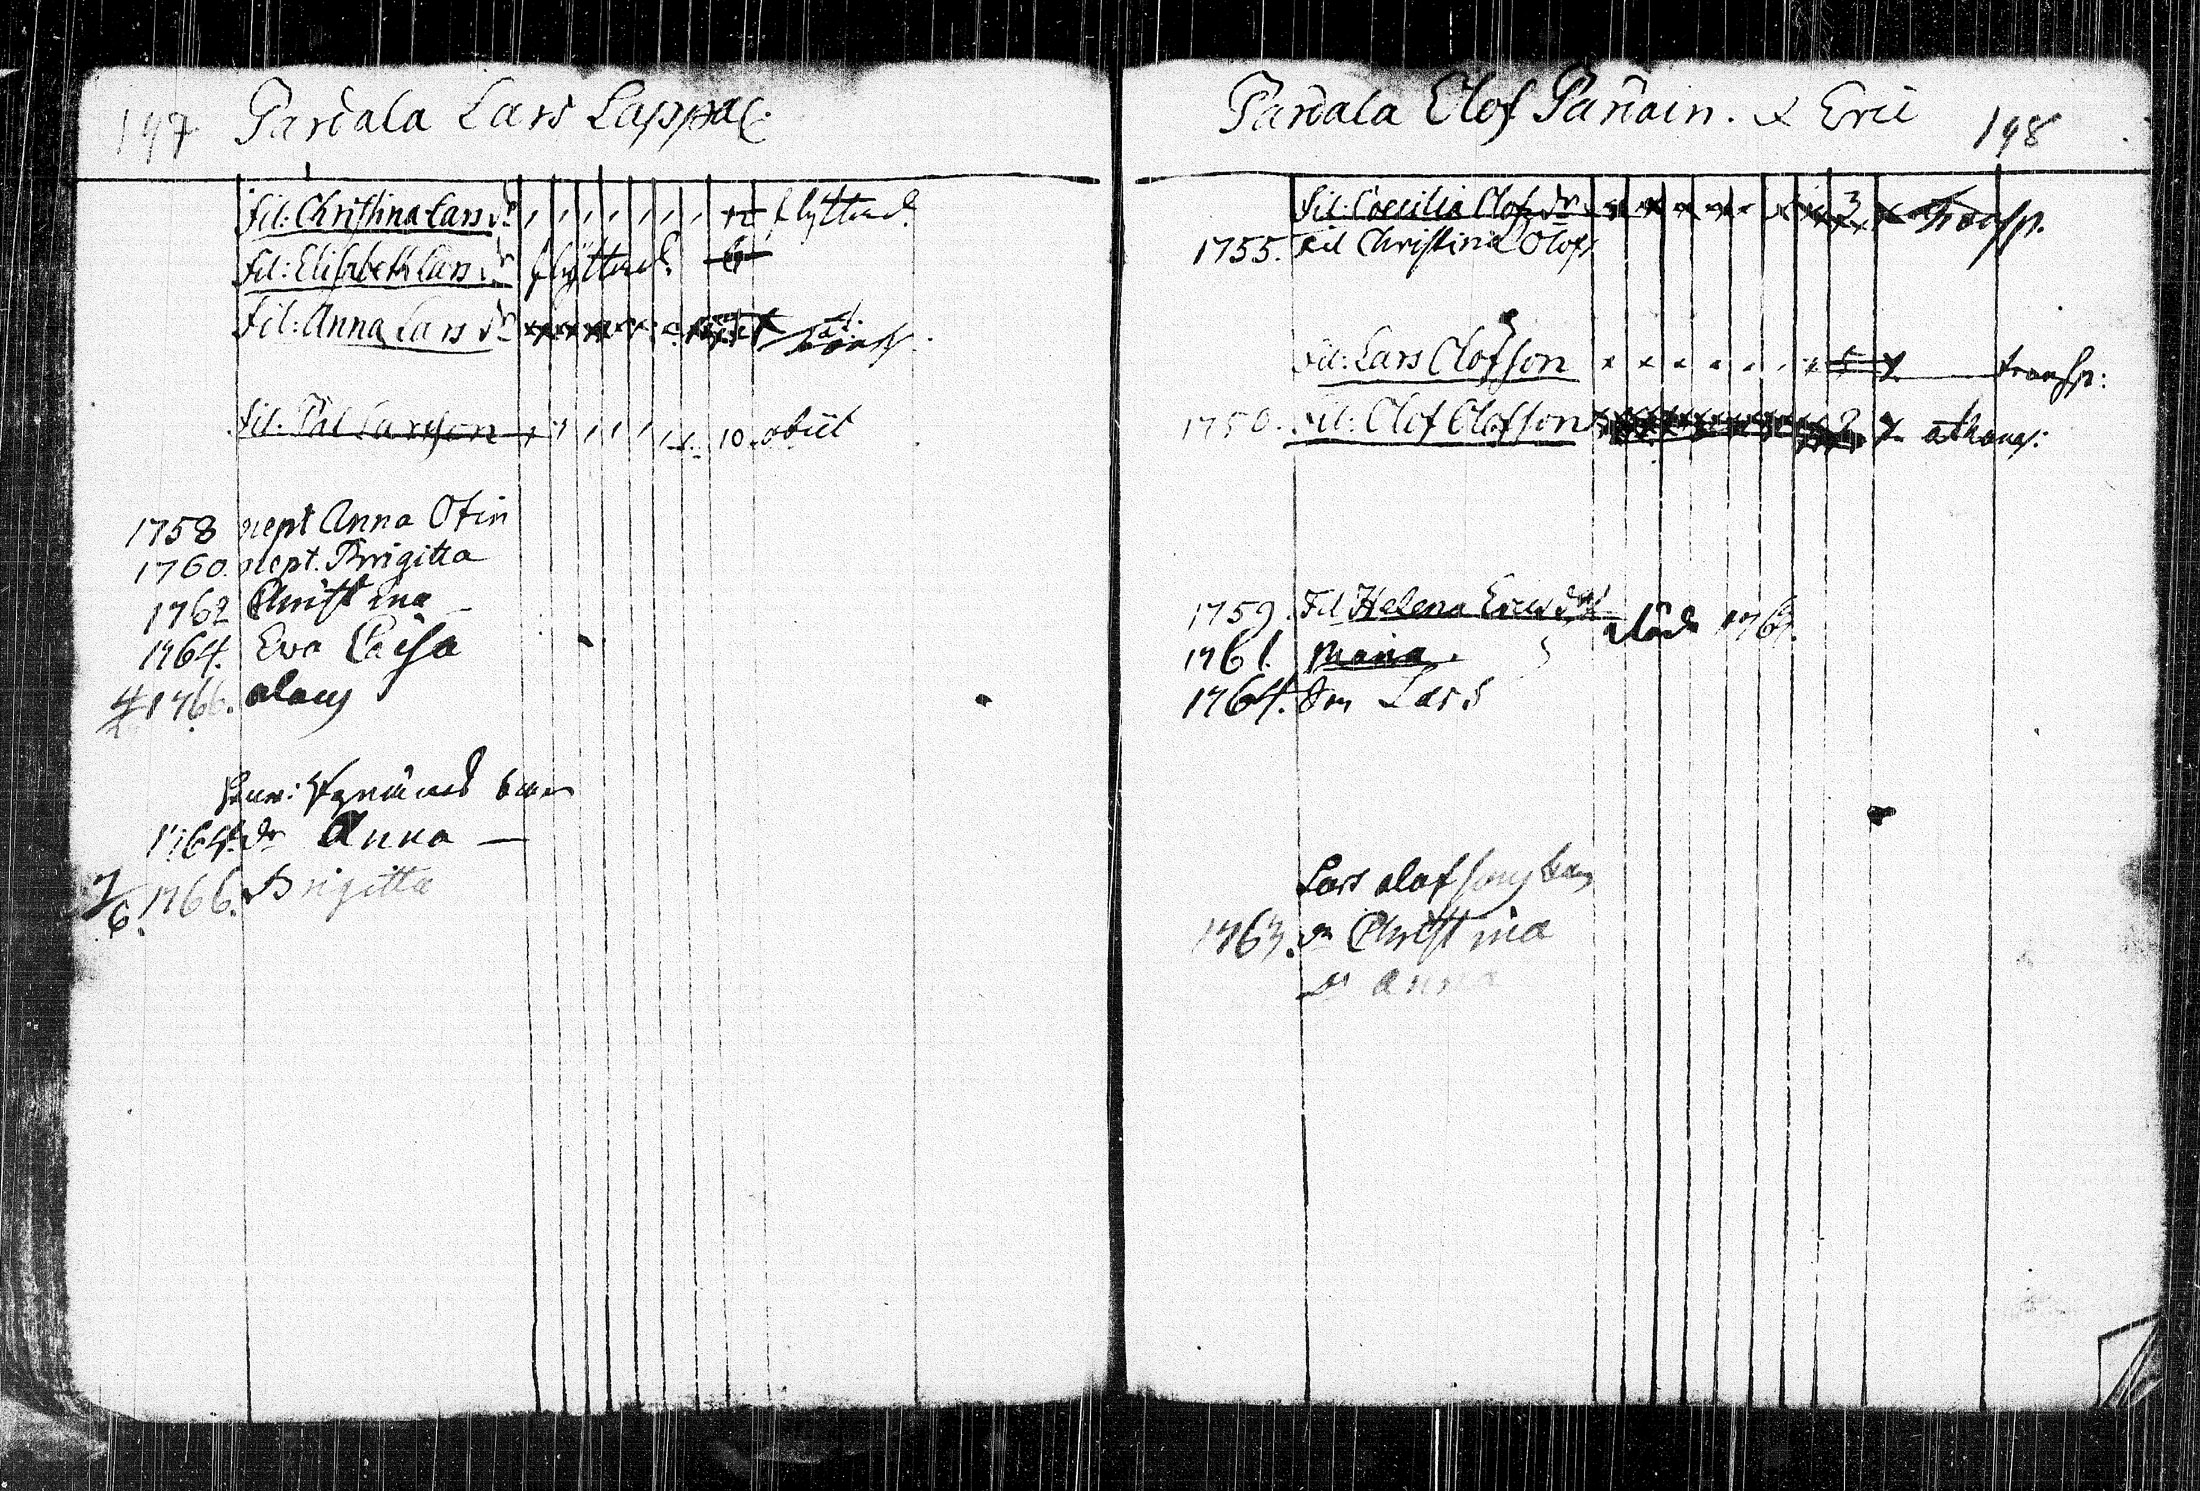 197 Pardala Lars Lappal:
Fil: Christina Lars dr flyttad
Fil: Elisabeth Lars dr flyttad 6
Fil: Anna Lars dr
Fil. Pål Larsson 10 obiit
1758 nept Anna Ofin
1760. nept. Brigitta
1762 Christina
1764. Eva Caisa
4/2 1766. olaus
1764. dr Anna —
7/6. 1766. Brigitta
Pardala Olof Pardain. & Eric 198
Fil: Coecilia Olofs dr 3 transp.
1755. Fil Christina Olofs
Fil: Lars Olofsson 5 transp:
1750. Fil: Olof Olofsson 2
1759. Fil Helena Erics dr död 176
1761. Maria.
1764. Son Lars
Lars olofsons barn
1763. dr Christina
dr anna